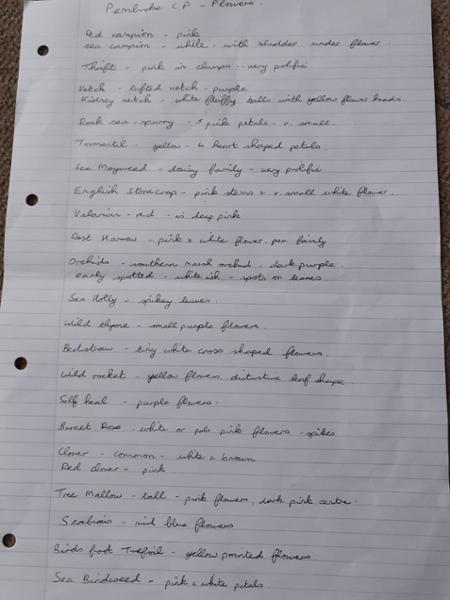 Pembroke C P - Flowers.
Red campion - pink
sea campion - white - with bladder under flower.
Thrift - pink in clumps - very prolific
Vetch - tufted vetch - purple
Kidney vetch - white fluffy balls with yellow flower heads.
Rock sea-spurry - 5 pink petals - v. small.
Tormentil - yellow - 4 heart shaped petals.
Sea Mayweed - daisy family - very prolific
English Stonecrop - pink stems & v. small white flower.
Valarian - red - is deep pink
Rest Harrow - pink & white flower, pea family
Orchids - southern marsh orchid - dark purple.
early spotted - whiteish - spots on leaves
Sea Holly - spikey leaves.
Wild thyme - small purple flowers.
Bedstraw - tiny white cross shaped flowers.
Wild rocket - yellow flowers, distinctive leaf shape.
Self heal - purple flowers.
Burnet Rose - white or pale pink flowers - spikes
Clover - common - white & brown
Red clover - pink
Tree Mallow - tall - pink flowers, dark pink centre.
- mid blue flowers
Birds foot Trefoil - yellow pointed flowers
Sea Bindweed - pink & white petals.